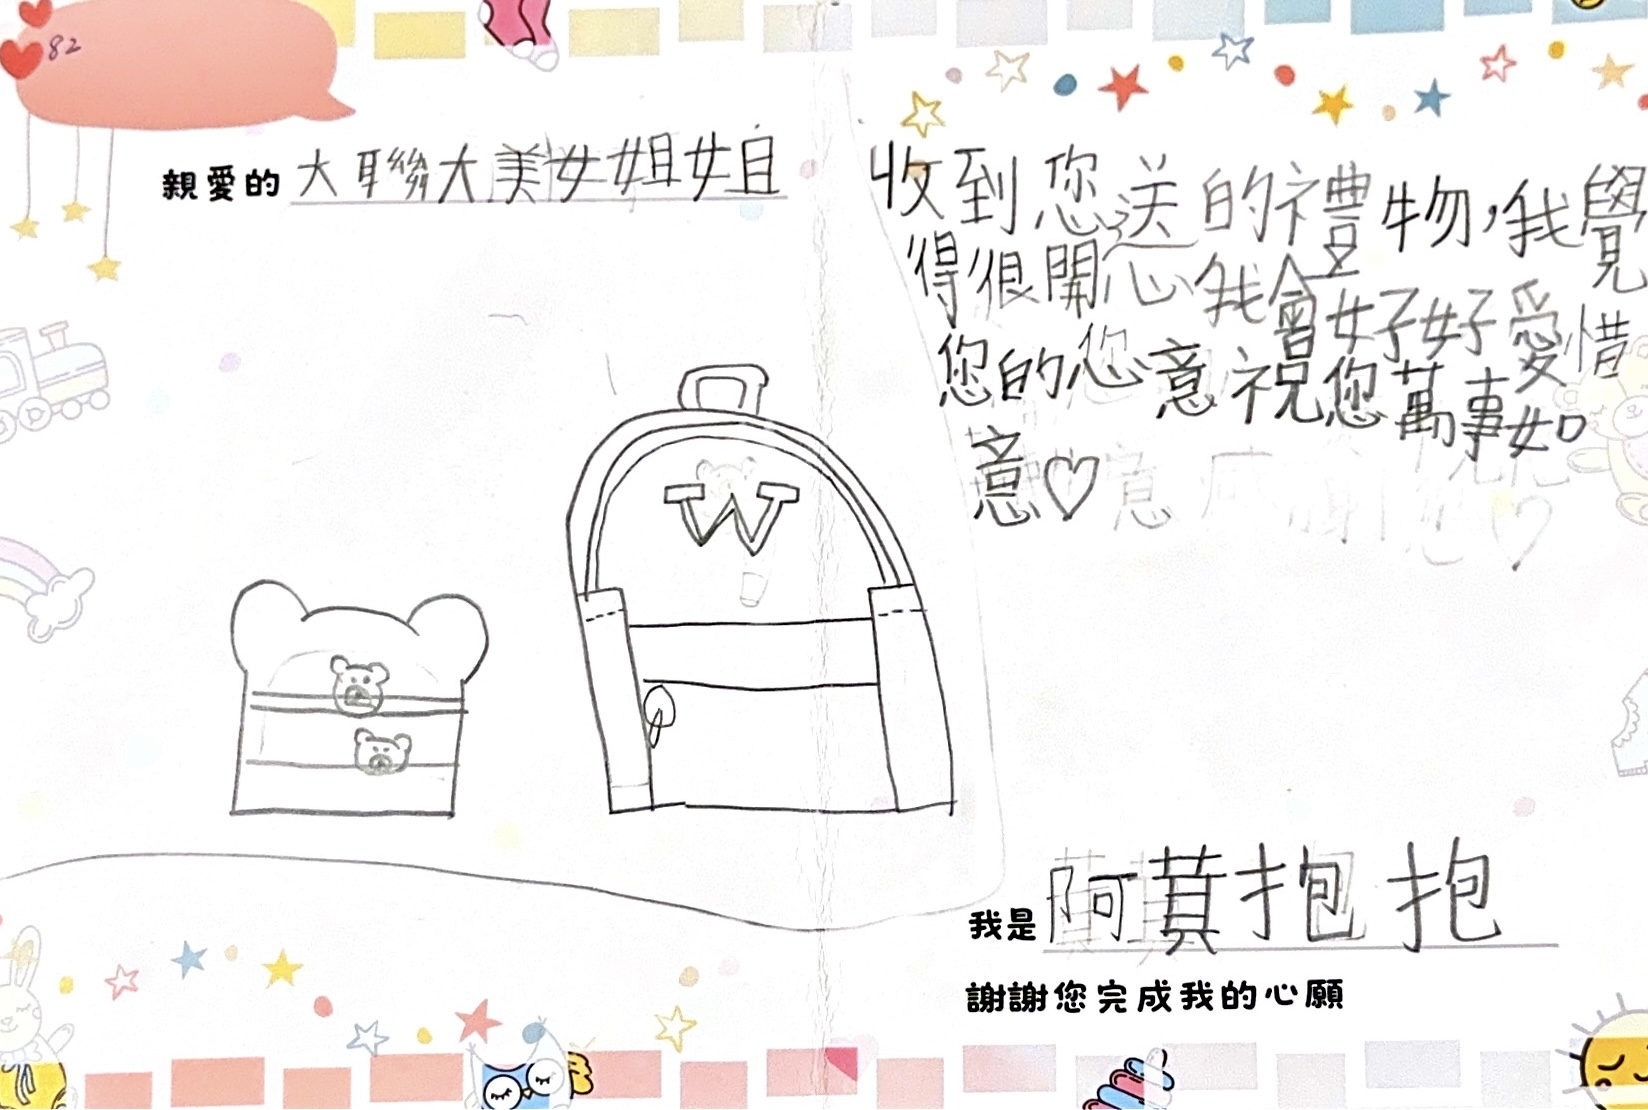 82
親愛的 大聯大美女姐姐
收到您送的禮物,我覺
得很開心我會好好愛惜
您的您意祝您萬事如
意♡
W
我是 阿蒖抱抱
謝謝您完成我的心願